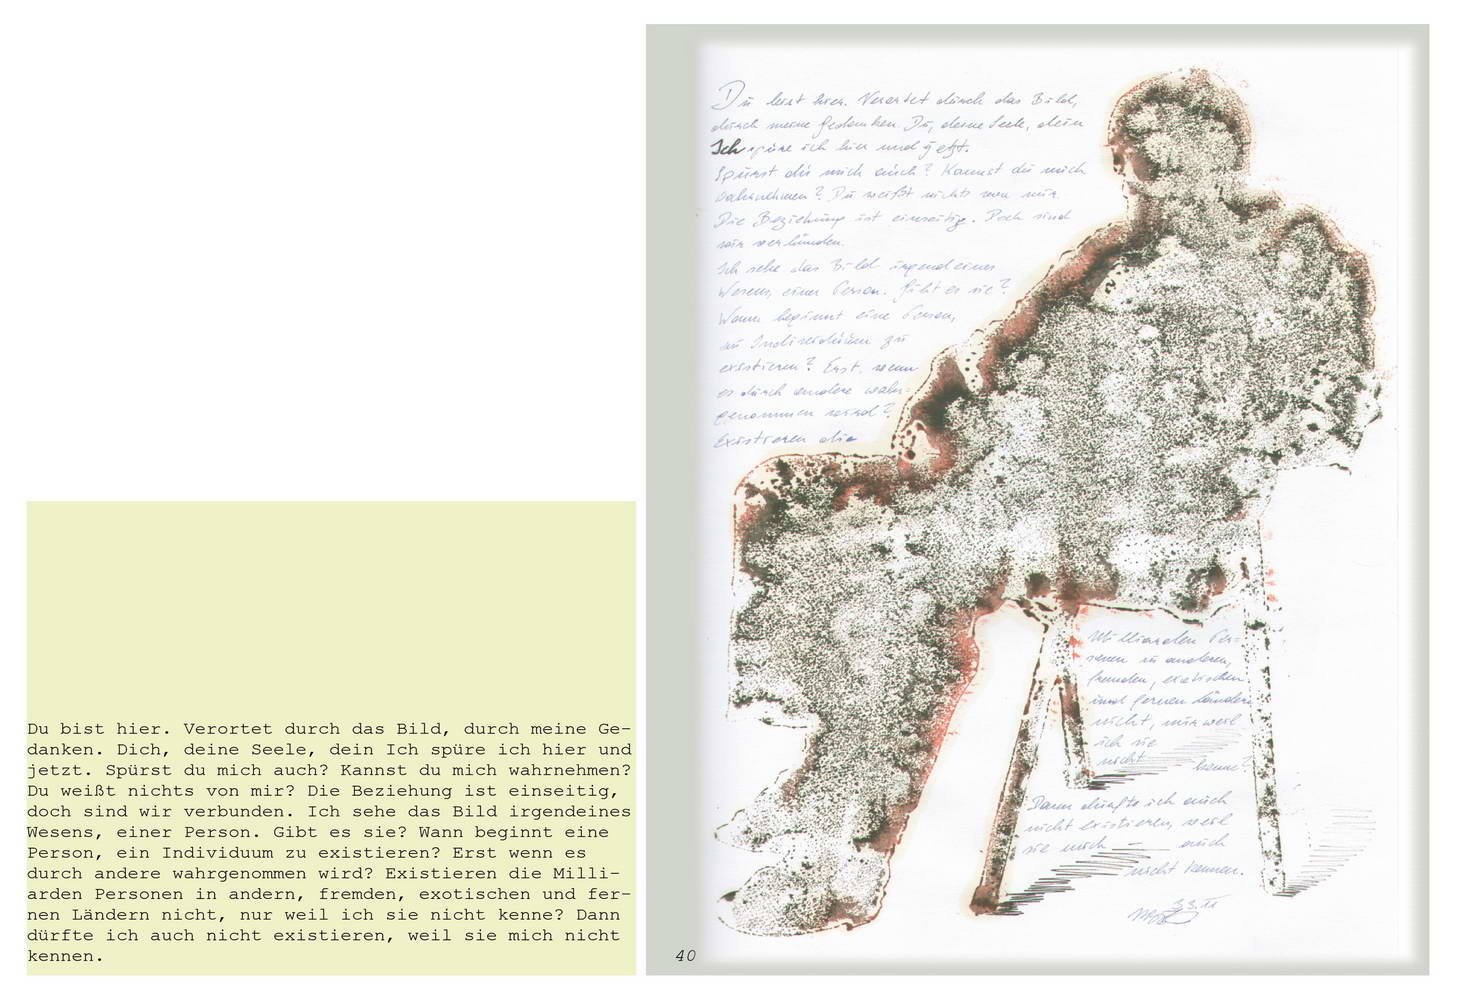 Du bist hier. Verortet durch das Bild, durch meine Ge-
danken. Dich, deine Seele, dein Ich spüre ich hier und
jetzt. Spürst du mich auch? Kannst du mich wahrnehmen?
Du weißt nichts von mir? Die Beziehung ist einseitig,
doch sind wir verbunden. Ich sehe das Bild irgendeines
Wesens, einer Person. Gibt es sie? Wann beginnt eine
Person, ein Individuum zu existieren? Erst wenn es
durch andere wahrgenommen wird? Existieren die Milli-
arden Personen in andern, fremden, exotischen und fer-
nen Ländern nicht, nur weil ich sie nicht kenne? Dann
dürfte ich auch nicht existieren, weil sie mich nicht
kennen.
Du bist hier. Verortet durch das Bild,
durch meine Gedanken. Du, deine Seele, dein
Ich spüre ich hier und jetzt.
Spürst du mich auch? Kannst du mich
wahrnehmen? Du weißt nichts von mir.
Die Beziehung ist einseitig. Doch sind
wir verbunden.
Ich sehe das Bild irgendeines
Wesens, einer Person. Gibt es sie?
Wann beginnt eine Person,
ein Individuum zu
existieren? Erst wenn
es durch andere wahr-
genommen wird?
Existieren die
Milliarden Per-
sonen in anderen,
fremden, exotischen
und fernen Ländern
nicht, nur weil
ich sie
nicht kenne?
Dann dürfte ich auch
nicht existieren, weil
sie mich auch
nicht kennen.
40